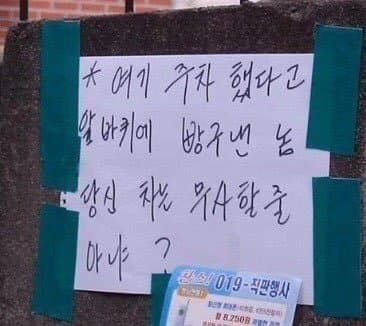 * 여기 주차 했다고
알바퀴에 빵구낸 놈
당신 차는 무사할 줄
아냐 ?
019-직판행사
월 8,250원